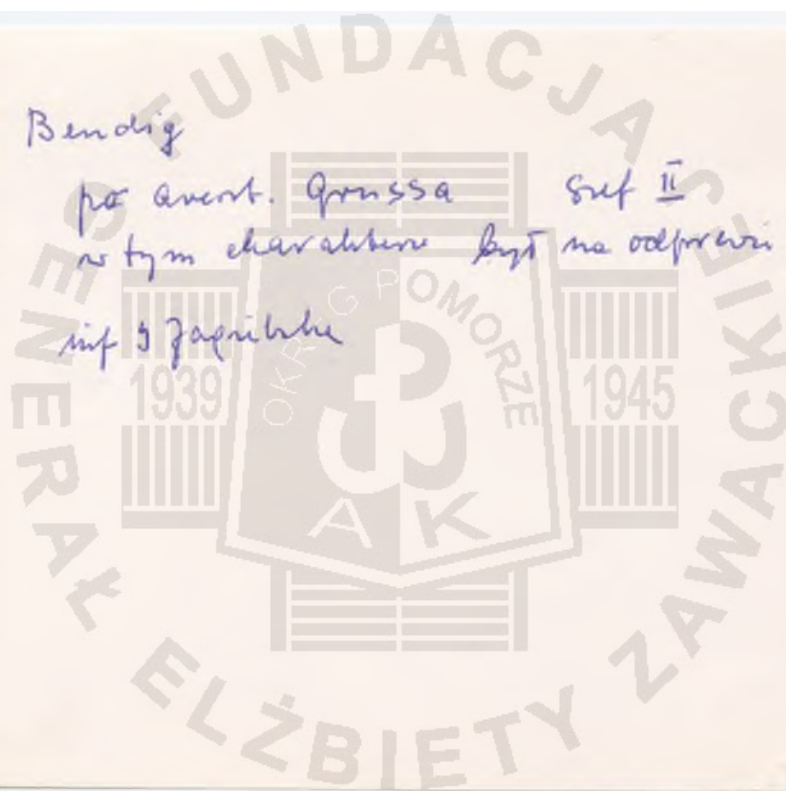 Bendig
po areszt. Grussa Szef II
w tym charakterze był na odprawie
inf J Zagrilske
FUNDACJA
GENERAŁ ELŻBIETY ZAWACKIEJ
OKRĘG POMORZE
1939 1945
AK